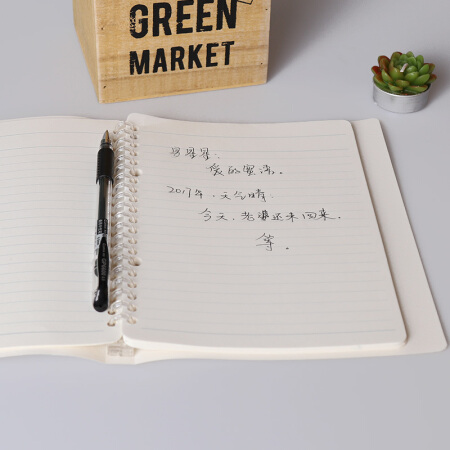 GREEN
MARKET
爱的宣言。
2017年.天气晴.
今天,老婆还未回来。
等。